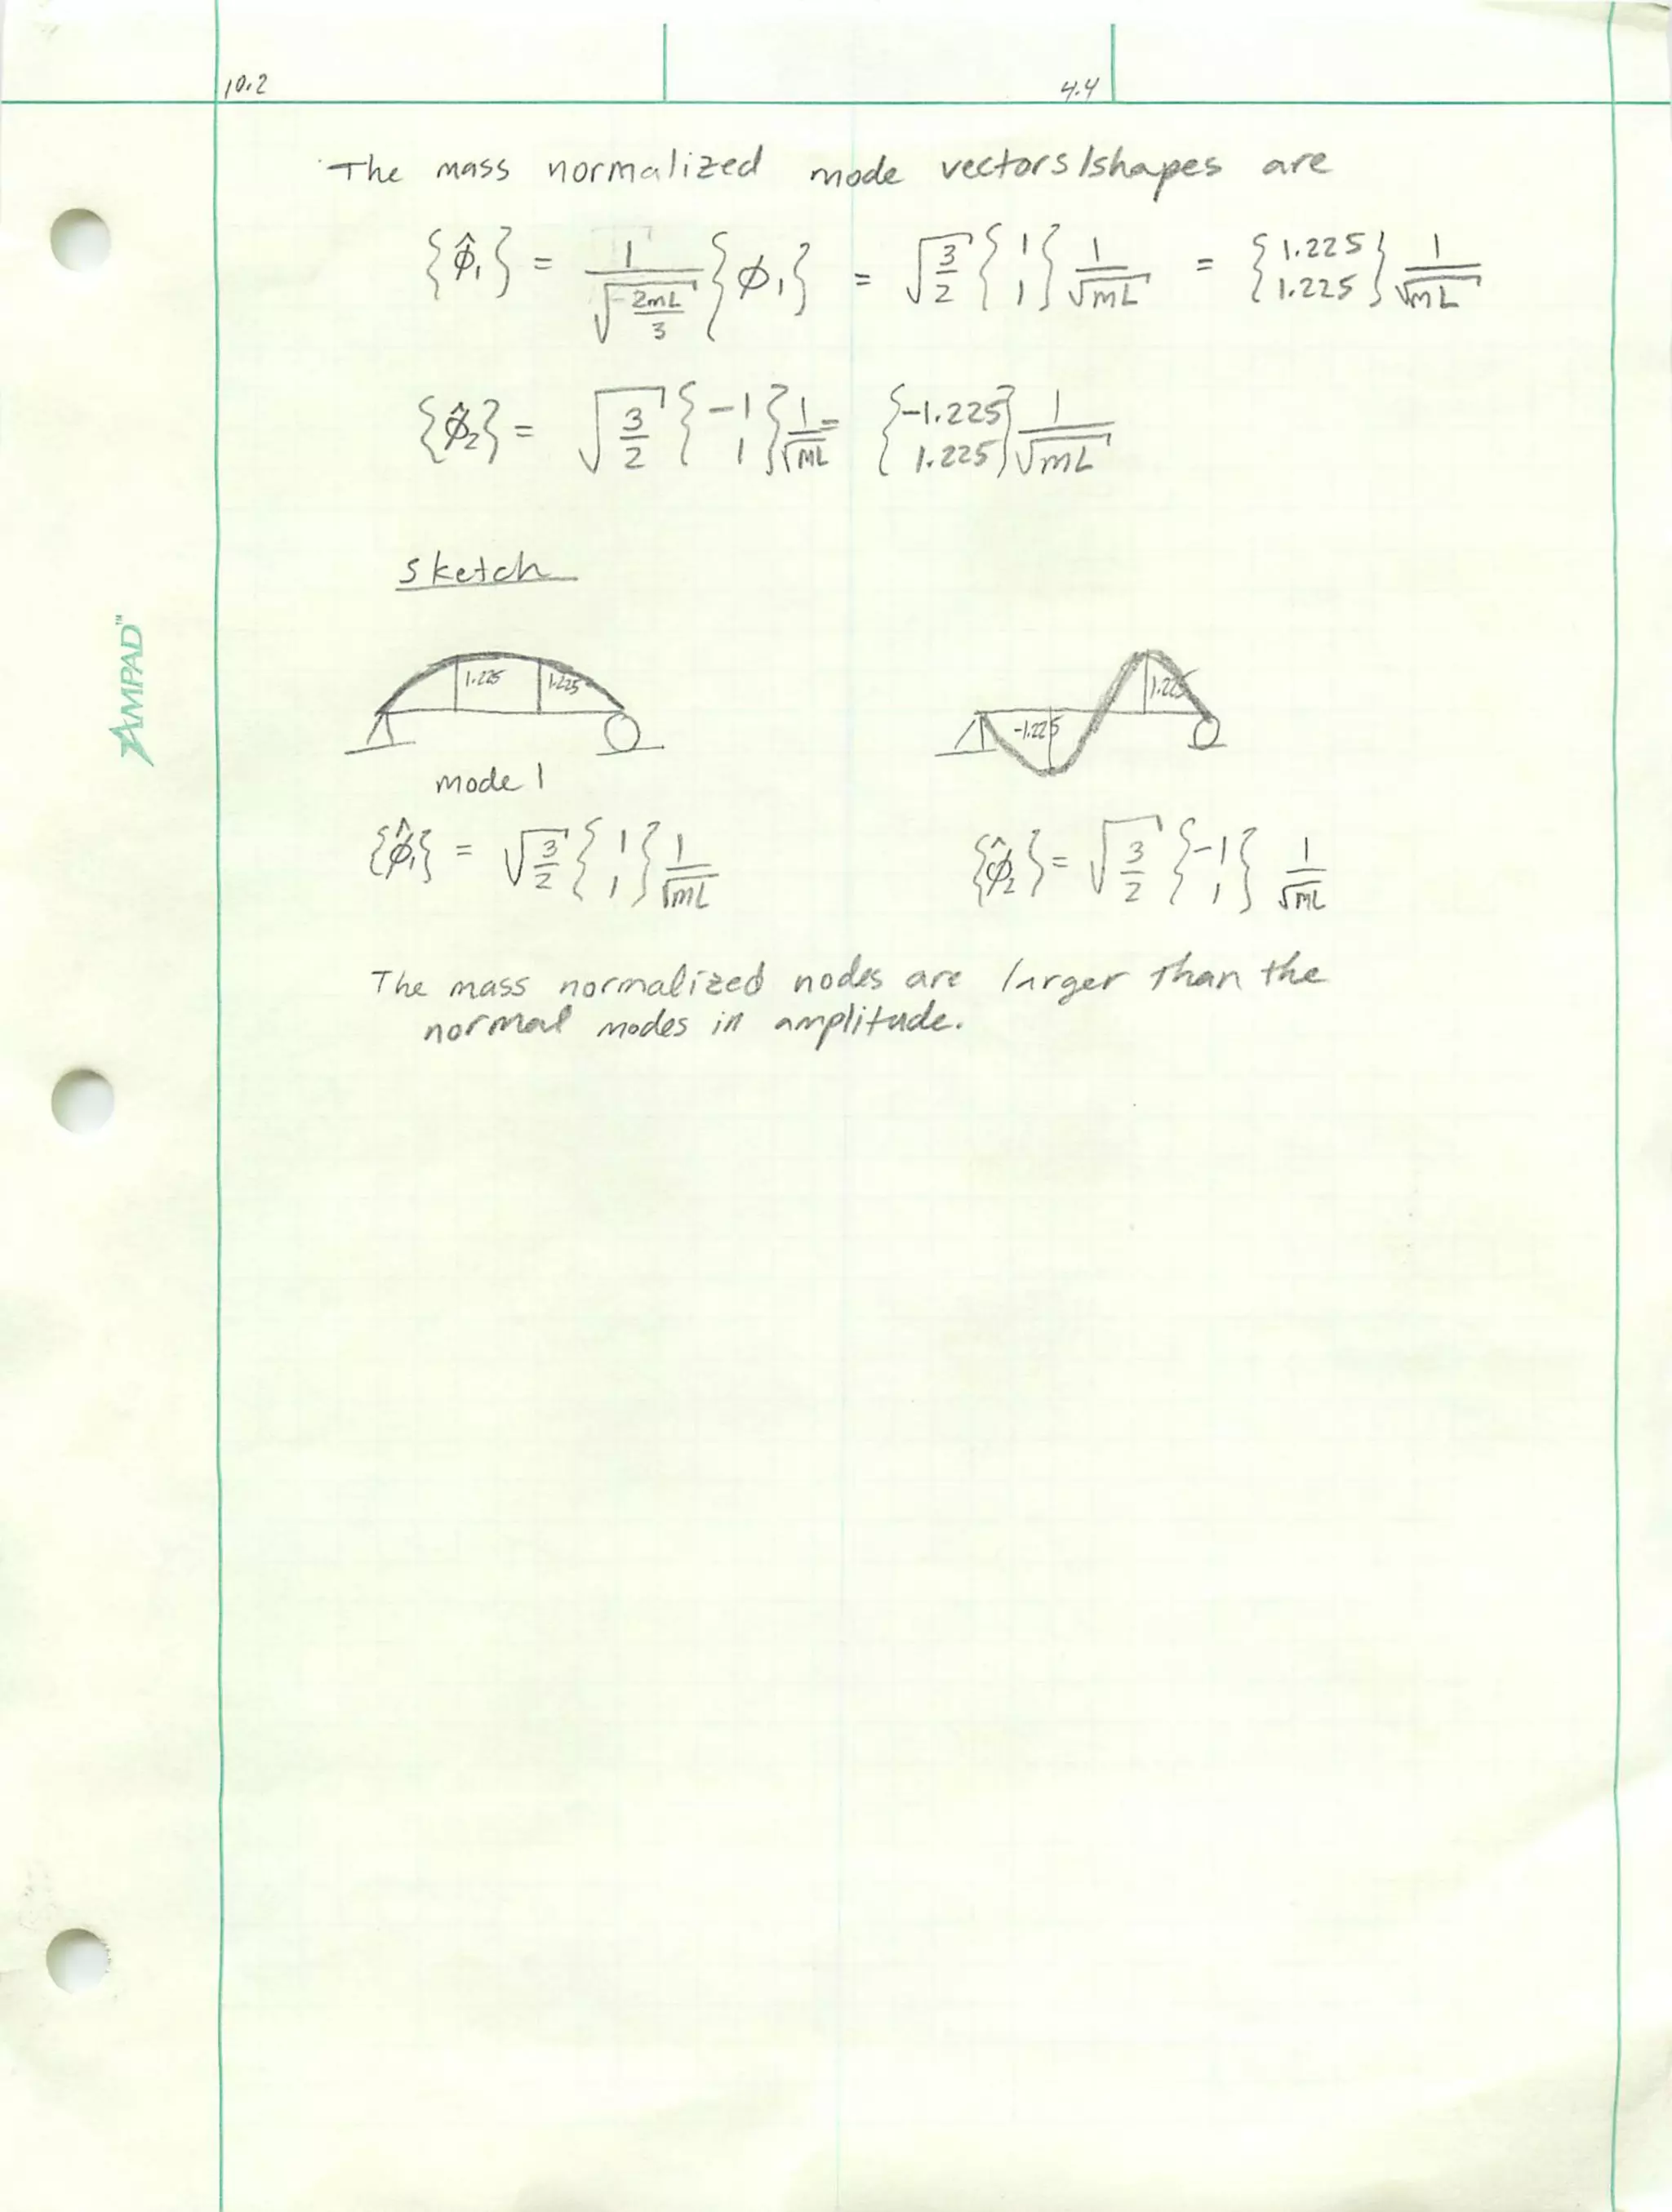 10.2
4.4
The mass normalized mode vectors/shapes are
{φ̂₁} = 1/√(2mL/3) {φ₁} = √(3/2) {1 1} 1/√mL = {1.225 1.225} 1/√mL
{φ̂₂} = √(3/2) {-1 1} 1/√mL = {-1.225 1.225} 1/√mL
sketch
1.225 1.225
-1.225 1.225
mode 1
{φ̂₁} = √(3/2) {1 1} 1/√mL
{φ̂₂} = √(3/2) {-1 1} 1/√mL
The mass normalized nodes are larger than the
normal modes in amplitude.
AMPAD™